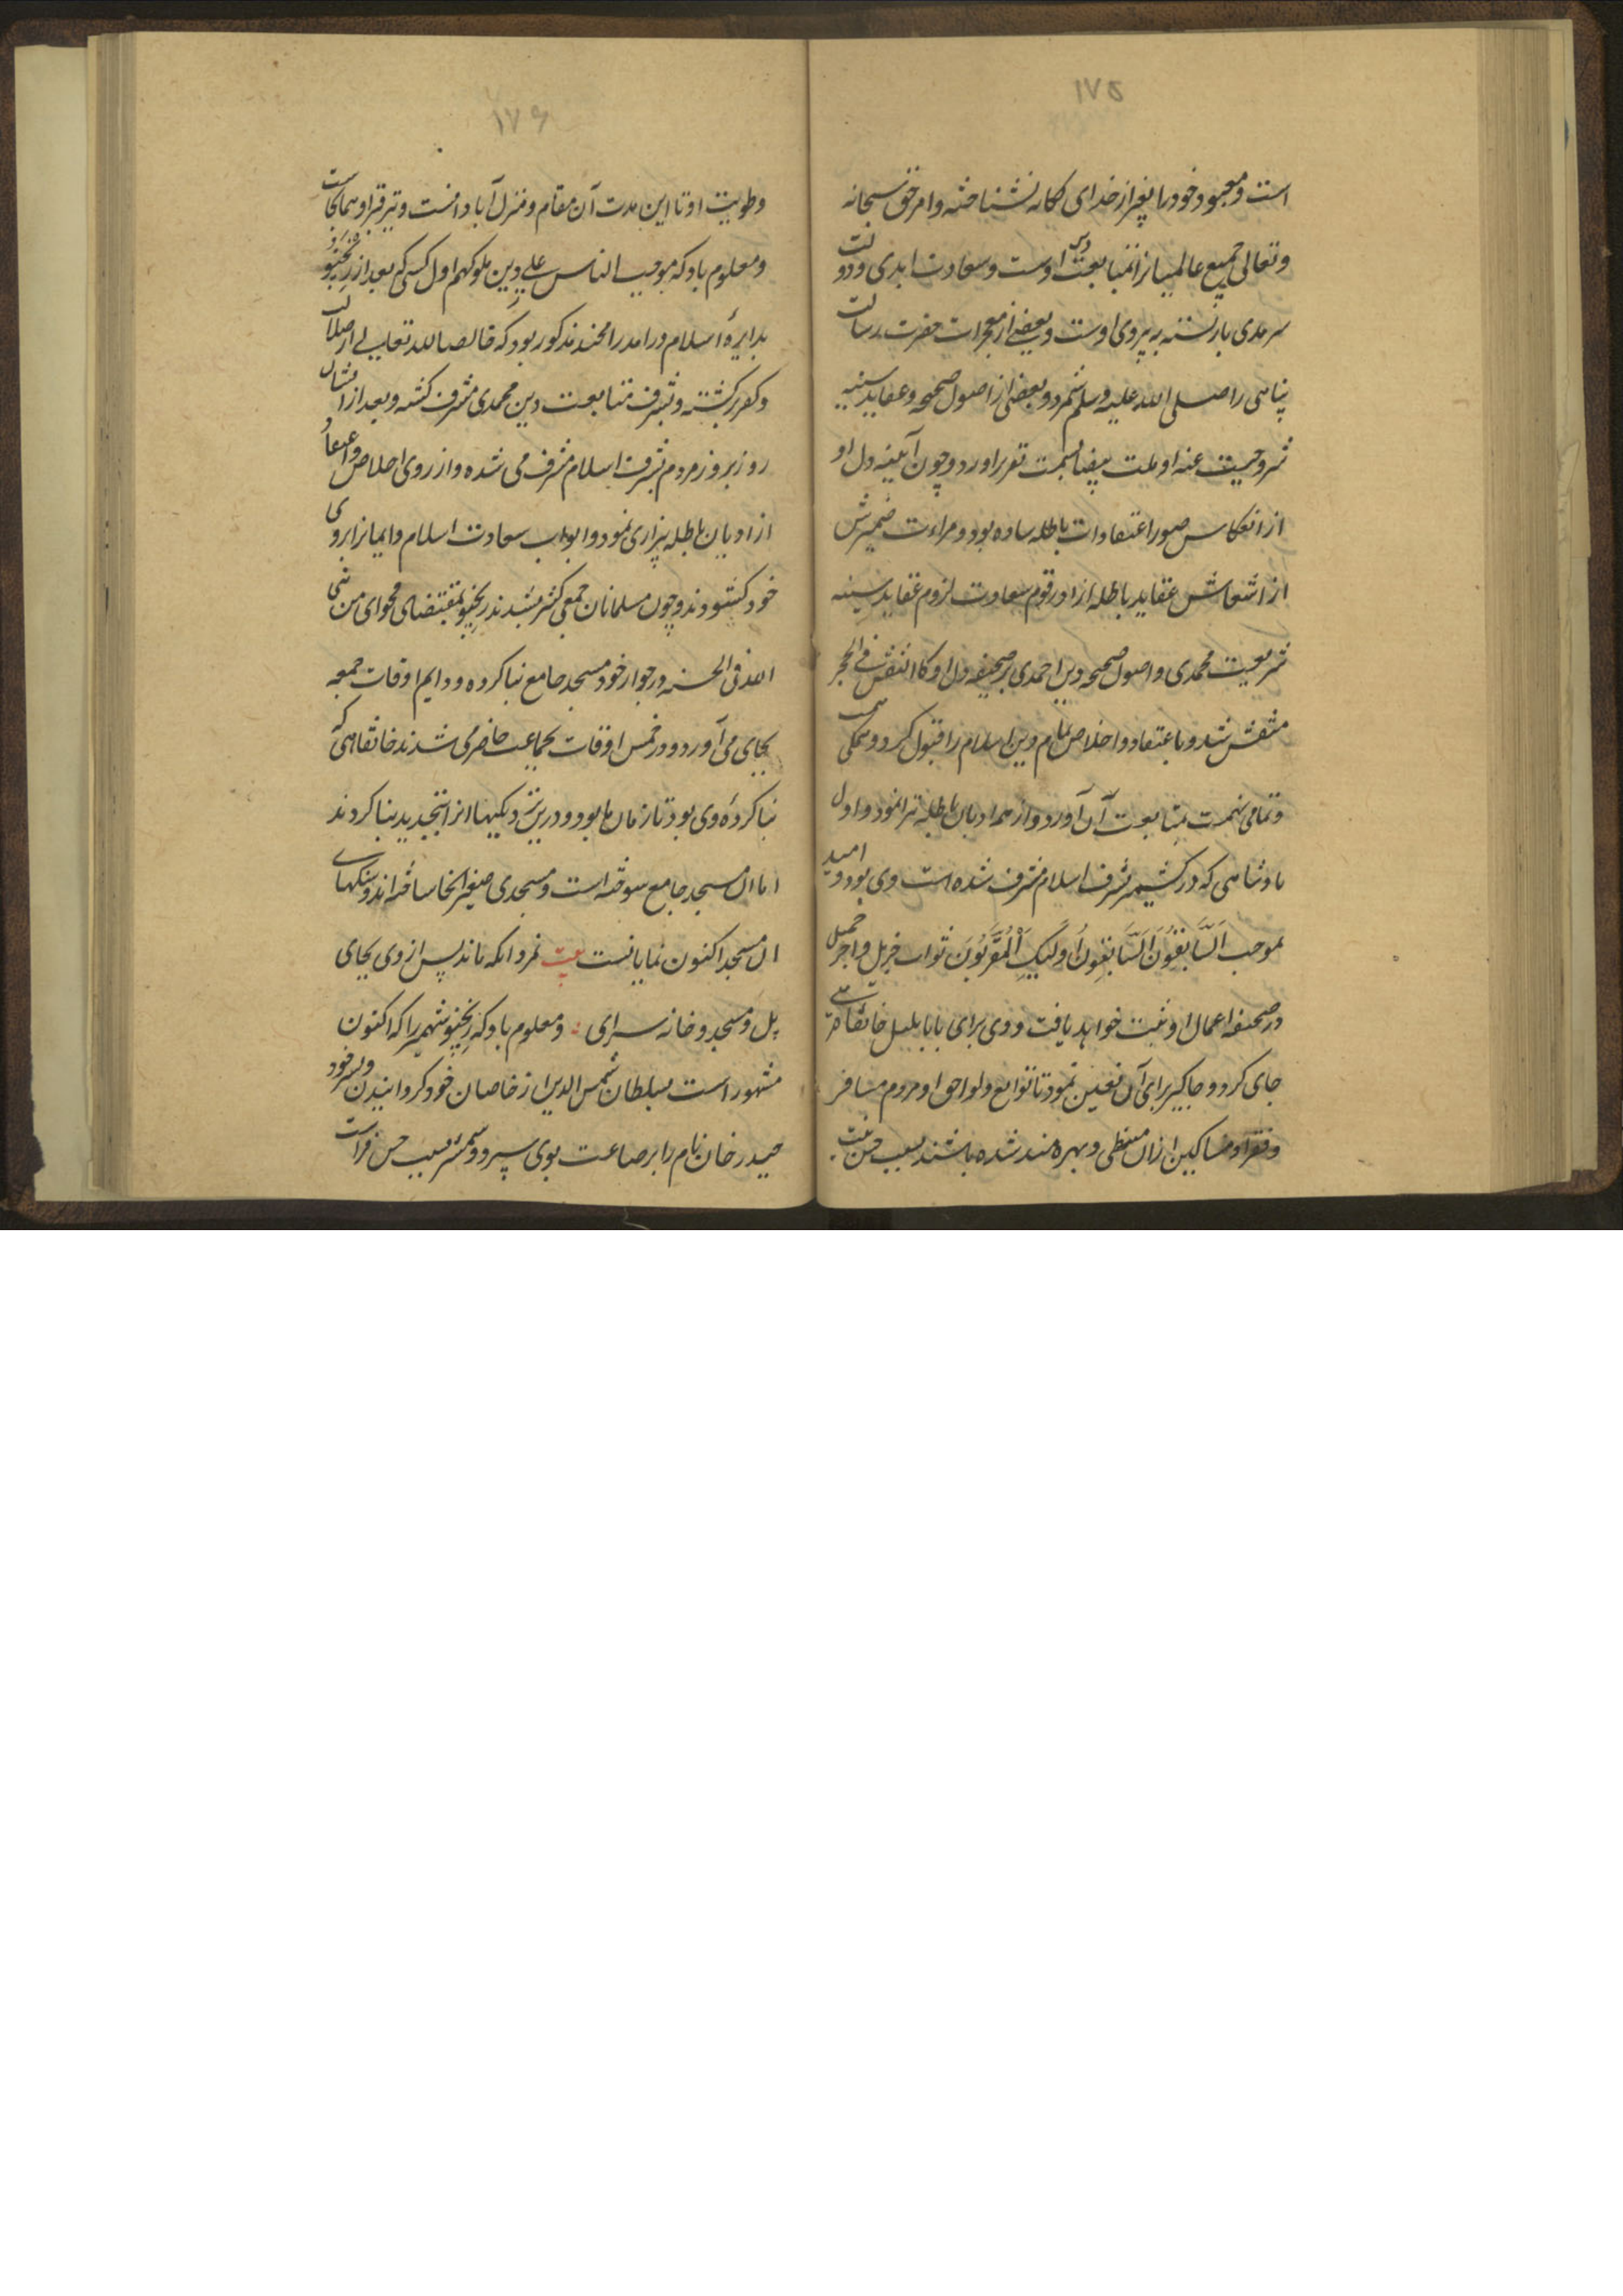 ۱۷۵
است و معبود خود را بغیر از خدای یگانه نشناخته و امر حق سبحانه
و تعالی جمیع عالمیانرا بمتابعت دین اوست و سعادت ابدی و دولت
سرمدی بازبسته به پیروی اوست و بعضی از معجزات حضرت رسالت
پناهی را صلی الله علیه وسلم شمرد و بعضی از اصول صحیحه و عقاید سنیه
شریعت ملت بیضا بسمت تقریر اورد و چون آیینه دل او
از انعکاس صور اعتقادات باطله ساده بود و مراءت ضمیرش
از عقاید باطله ازاد رقوم سعادت لزوم عقاید سنیه
شریعت محمدی و اصول صحیحه دین احمدی بر صحیفه دل او کالنقش فی الحجر
منقش شد و باعتقاد و اخلاص تمام دین اسلام را قبول کرد و همگی
و تمامی نهمت بمتابعت آن آورد و از همه ادیان باطله تبرا نمود و اول
پادشاهی که در کشمیر بشرف اسلام مشرف شده است وی بود و امید
بموجب اَلسَّابِقُونَ اَلسَّابِقُونَ اُولَئِكَ الْمُقَرَّبُونَ ثواب جزیل و اجر جمیل
در صحیفه اعمال او ثبت خواهد یافت و وی برای بابا بلبل خانقاهی
جای کرد و جاگیر برای آن تعین نمود تا توابع و لواحق او و مردم مسافر
و فقرا و مساکین ازان محظی و بهره مند شده باشند بسبب حسن نیت
۱۷۶
و طویت او تا این مدت آن مقام و منزل آبادانست و نیز قبر او همانجاست
و معلوم باد که بموجب الناس علی دین ملوکهم اول کسی که بعد از رنچو
بدایرهٔ اسلام درامد مذکور بود که خالصا لله تعالی از ضلالت
و کفر برگشته و بشرف متابعت دین محمدی مشرف گشته و بعد از ایشان
روز بروز مردم بشرف اسلام مشرف می شده و از روی اخلاص و اعتقاد
از ادیان باطله بیزاری نمود و ابواب سعادت اسلام و ایمانرا بروی
خود گشودند و چون مسلمانان جمعی کثیر شدند رنچو بمقتضای فحوای من بنی
لله فی الجنه در جوار خود مسجد جامع بنا کرده و دایم اوقات جمعه
بجای می آورد و در خمس اوقات بجماعت حاضر می شدند خانقاهی که
بنا کردهٔ وی بود تا زمان ما بود و درین نزدیکیها انرا بتجدید بنا کردند
اما ان مسجد جامع سوخته است و مسجدی صغیر انجا ساخته اند و سنگهای
ان مسجد اکنون نمایانست بیت نمرد انکه ماند پس از وی بجای
پل و مسجد و خانه سرای ؞ و معلوم باد که رنچو شهمیر را که اکنون
مشهور است بسلطان شمس الدین از خاصان خود گردانیدن و پسر خود
حیدر خان نام را بوی سپرد و شهمیر بسبب حسن فراست